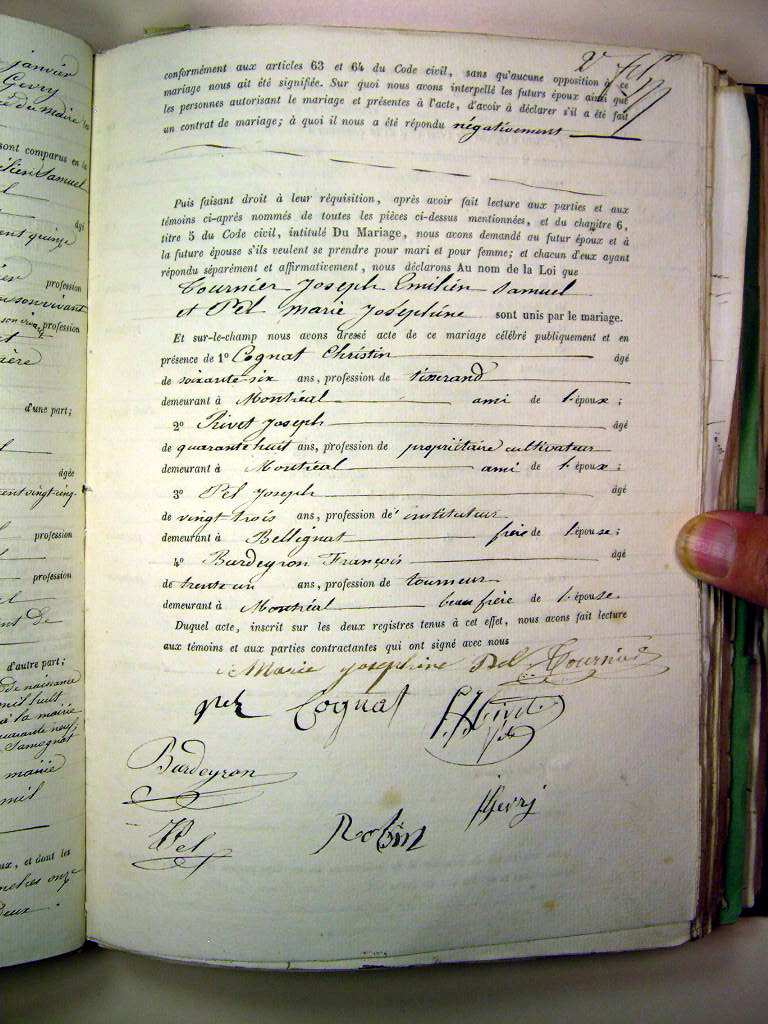 janvier
Gevry
sont comparus en la
Samuel
âgé
profession
vivant
profession
d'une part;
âgée
profession
profession
d'autre part;
de naissance
mil huit
à la mairie
quarante neuf
Samognat
mairie
mil
ux, et dont les
onze
conformément aux articles 63 et 64 du Code civil, sans qu'aucune opposition à ce
mariage nous ait été signifiée. Sur quoi nous avons interpellé les futurs époux ainsi que
les personnes autorisant le mariage et présentes à l'acte, d'avoir à déclarer s'il a été fait
un contrat de mariage; à quoi il nous a été répondu négativement
Puis faisant droit à leur réquisition, après avoir fait lecture aux parties et aux
témoins ci-après nommés de toutes les pièces ci-dessus mentionnées, et du chapitre 6,
titre 5 du Code civil, intitulé Du Mariage, nous avons demandé au futur époux et à
la future épouse s'ils veulent se prendre pour mari et pour femme; et chacun d'eux ayant
répondu séparément et affirmativement, nous déclarons Au nom de la Loi que
Tournier Joseph Emilien Samuel
et Pel marie Joséphine sont unis par le mariage.
Et sur-le-champ nous avons dressé acte de ce mariage célébré publiquement et en
présence de 1º Cognat Christin âgé
de soixante-six ans, profession de tisserand
demeurant à Montréal ami de l'époux;
2º Rivet Joseph âgé
de quarante huit ans, profession de propriétaire cultivateur
demeurant à Montréal ami de l'époux;
3º Pel Joseph âgé
de vingt trois ans, profession de instituteur
demeurant à Bellignat frère de l'épouse;
4º Bardeyron François âgé
de trente un ans, profession de tourneur
demeurant à Montréal beau frère de l'épouse.
Duquel acte, inscrit sur les deux registres tenus à cet effet, nous avons fait lecture
aux témoins et aux parties contractantes qui ont signé avec nous
Marie Joséphine Pel Tournier
Cognat
Bardeyron
Pel Robin Gevry